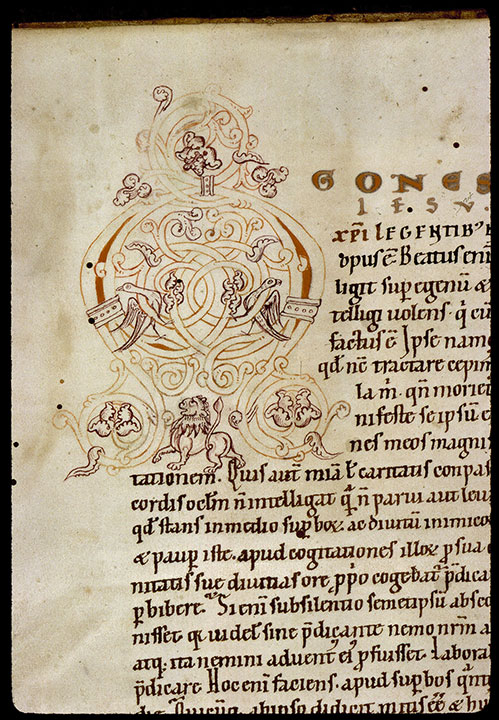 GONES
IESV
XPI LEGENTIBVS
opus ē Beatus eni
ligit sup egenū &
telligi uolens q̇ cū
factus ē Ipse nam
qd nē tractare cepim
la m̄ qn̄ moriet
nifeste se ipsū
nes meos magnis
tationem. Quis aut̄ miā ł caritatis conpas
cordis ocłm n̄ intelligat q̄ n̄ parui aut leui
qd stans in medio supboꝝ ac diuitū inimico
& paup iste. apud cogitationes illoꝝ p sua
nitatis sue diuitias ore pp̄o cogebat̄ p̄dica
p bibere. Si eni sub silentio semetipsū absco
nisset qui uidel̄ sine p̄dicante nemo nr̄m a
atq. ita nemini aduent ei pfuisset. labora
p̄dicare Hoc eni faciens. apud supbos
didicit & hu